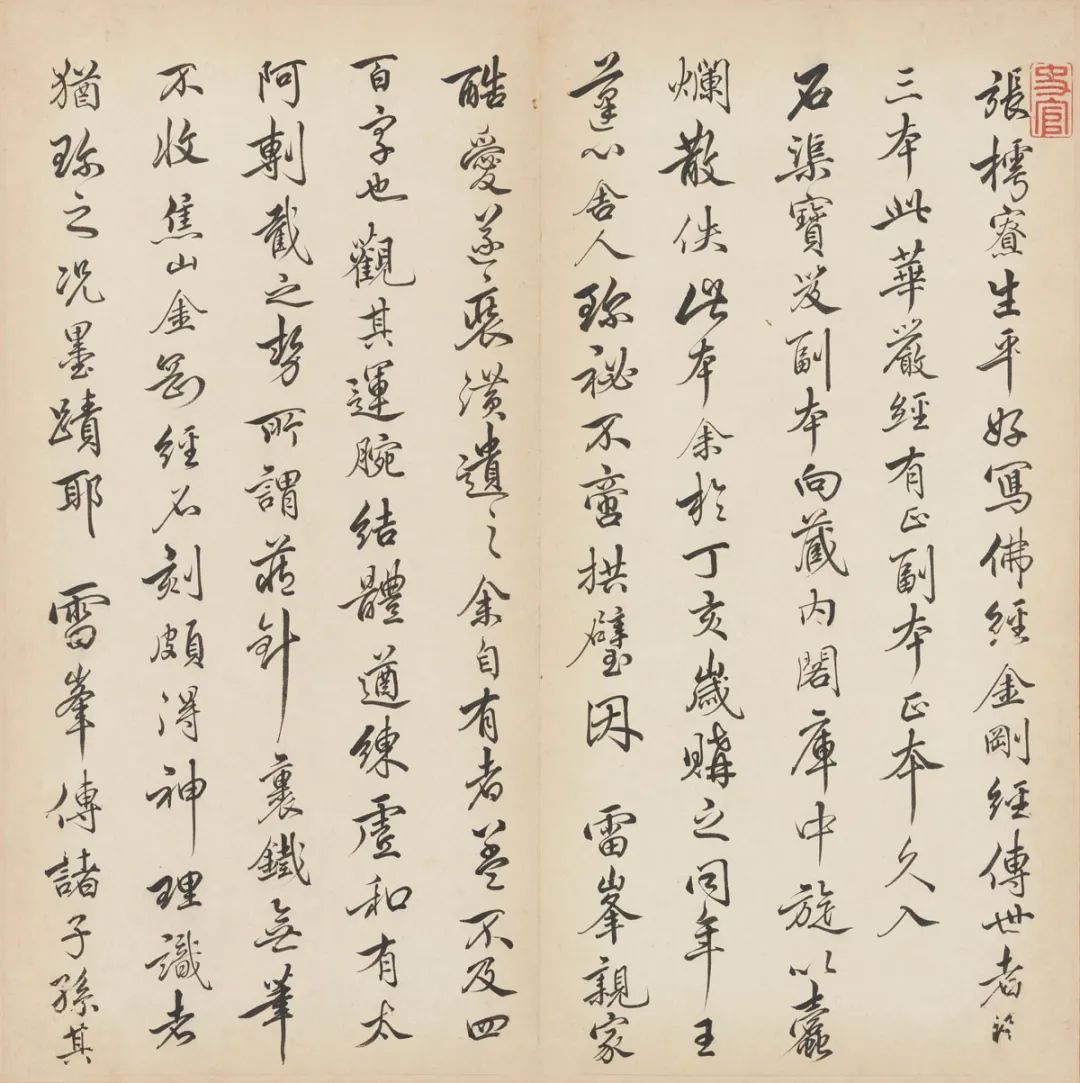 史官
張樗寮生平好寫佛經金剛經傳世者
三本此華嚴經有正副本正本久入
石渠寶笈副本向藏內閣庫中旋以蠹
爛散佚此本余於丁亥歲購之同年王
蓮心舍人珍祕不啻拱璧因 雷峯親家
酷愛遂褫潢遺之余自有者並不及四
百字也觀其運腕結體遒練虛和有太
阿剸截之勢所謂藏針裹鐵無筆
不收焦山金剛經石刻頗得神理識者
猶珍之况墨蹟耶 雷峯傳諸子孫其